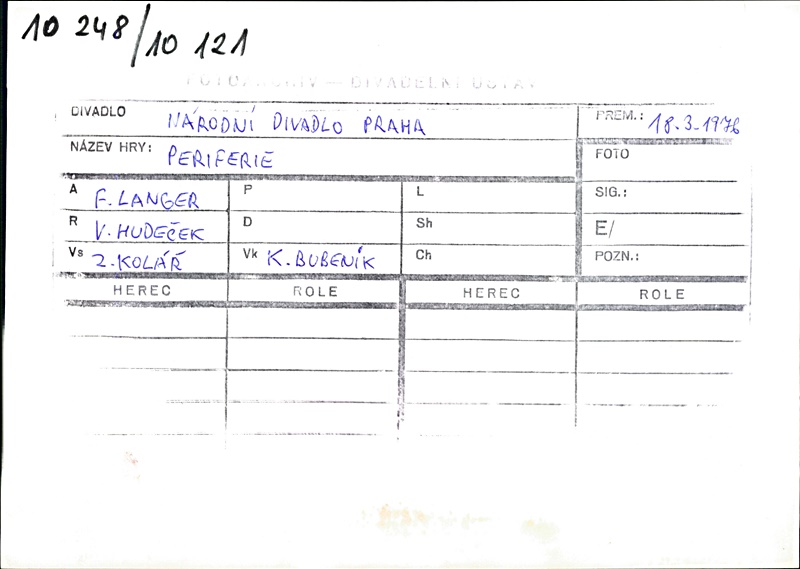 10 248/10 121
FOTOARCHIV — DIVADELNÍ ÚSTAV
DIVADLO NÁRODNÍ DIVADLO PRAHA PREM.: 18.3.1976
NÁZEV HRY: PERIFERIE FOTO
A F. LANGER P L SIG.:
R V. HUDEČEK D Sh E/
Vs Z. KOLÁŘ Vk K. BUBENÍK Ch POZN.:
HEREC ROLE HEREC ROLE